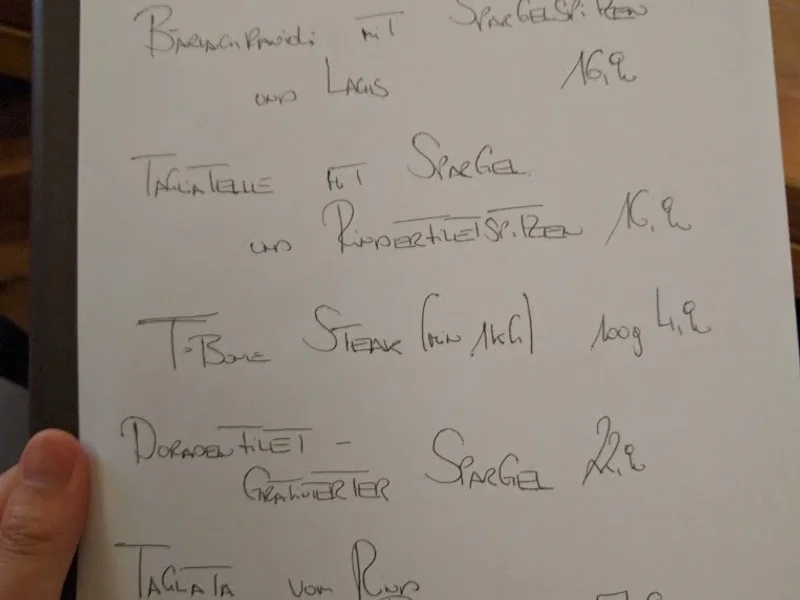 Bärlauchravioli mit Spargelspitzen
und Lachs 16,90
Tagliatelle mit Spargel
und Rinderfiletspitzen 16,90
T-Bone Steak (min 1kg) 100g 4,90
Doradenfilet -
Gratinierter Spargel 22,90
Tagliata vom Rind